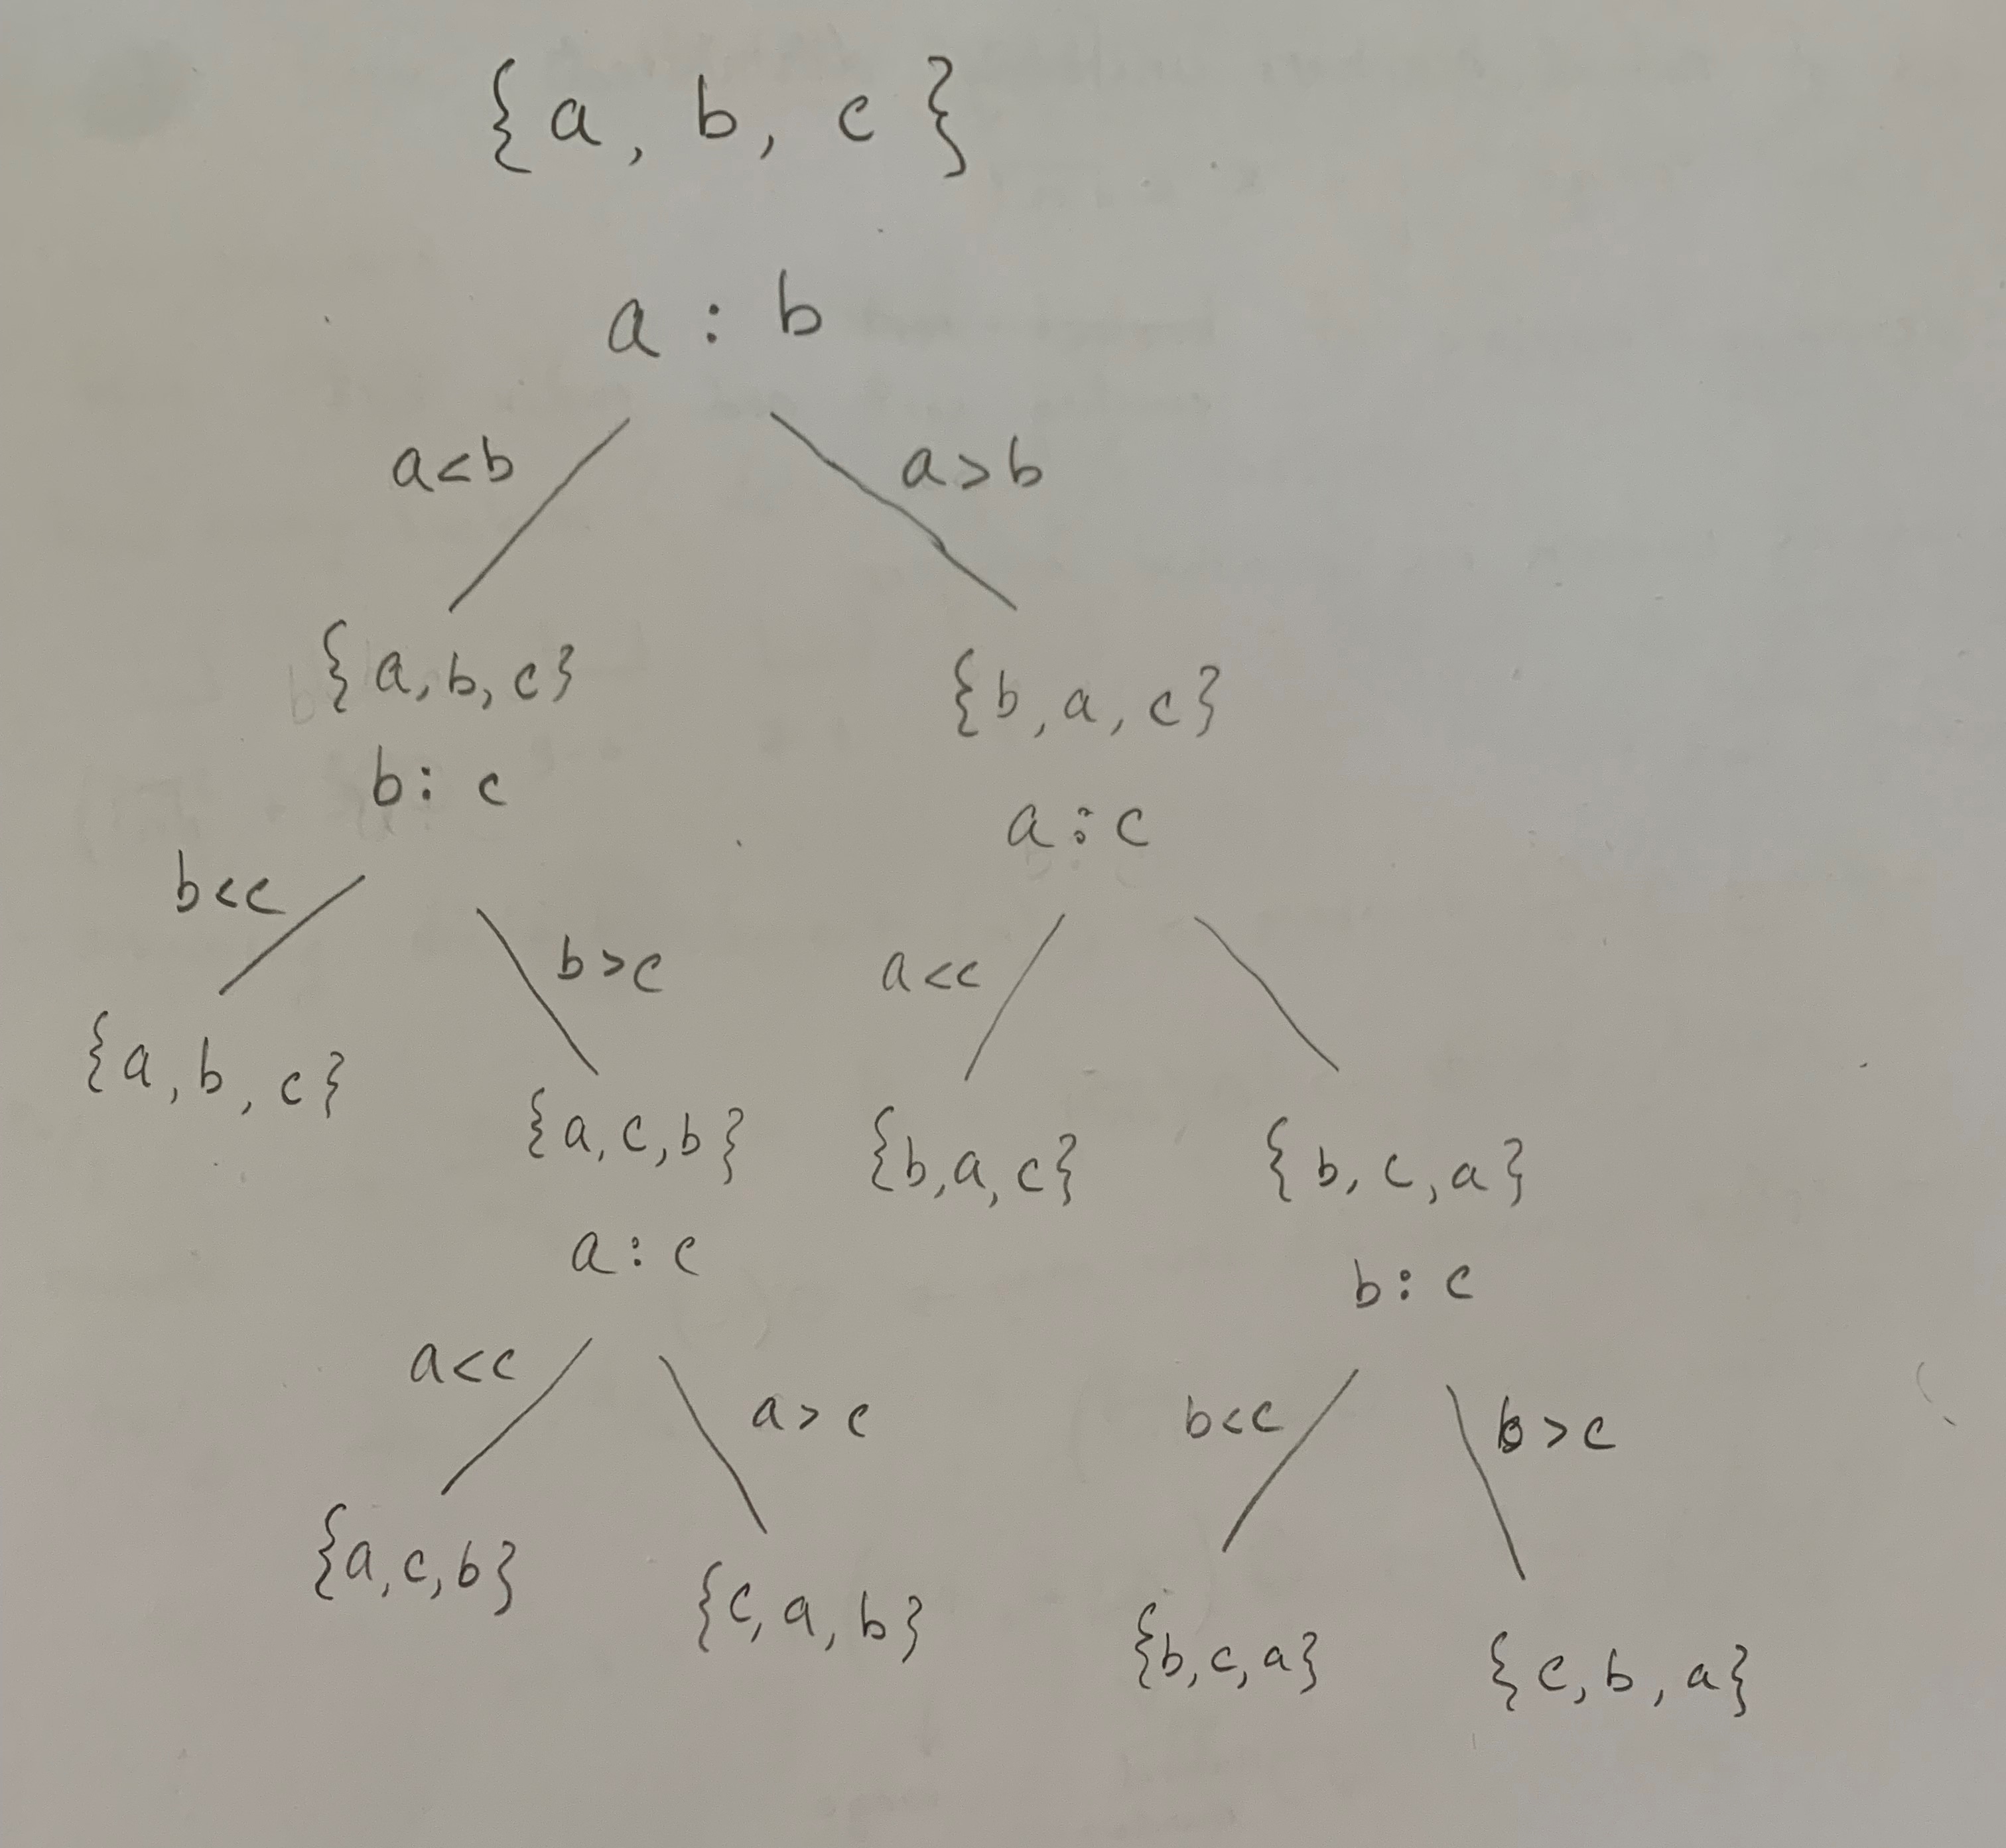 {a, b, c}
a : b
a<b
a>b
{a, b, c}
{b, a, c}
b : c
a : c
b<c
b>c
a<c
{a, b, c}
{a, c, b}
{b, a, c}
{b, c, a}
a : c
b : c
a<c
a>c
b<c
b>c
{a, c, b}
{c, a, b}
{b, c, a}
{c, b, a}